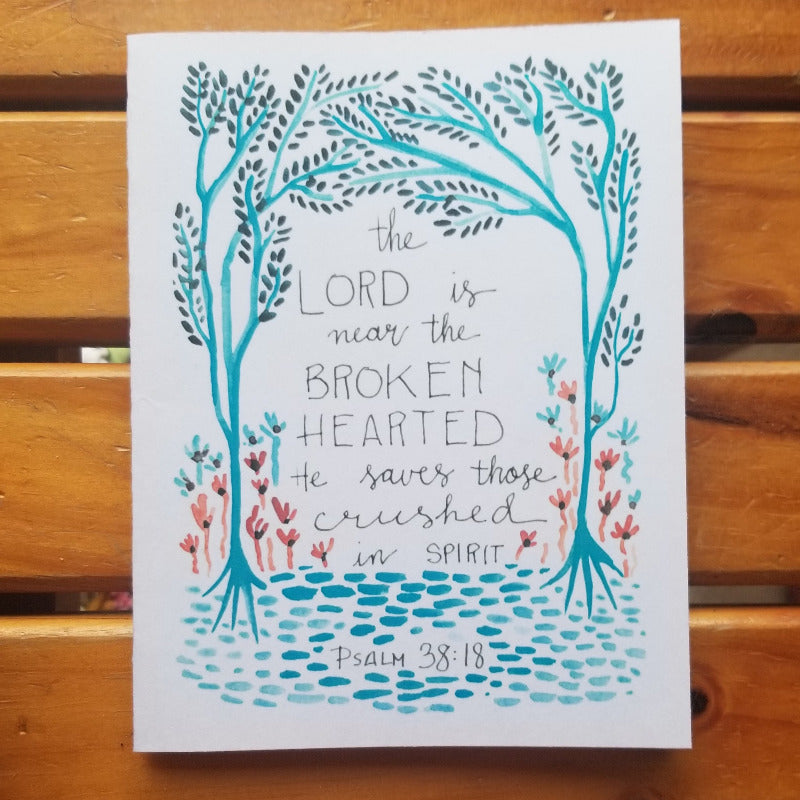 the
LORD is
near the
BROKEN
HEARTED
He saves those
crushed
in SPIRIT
PSALM 38:18